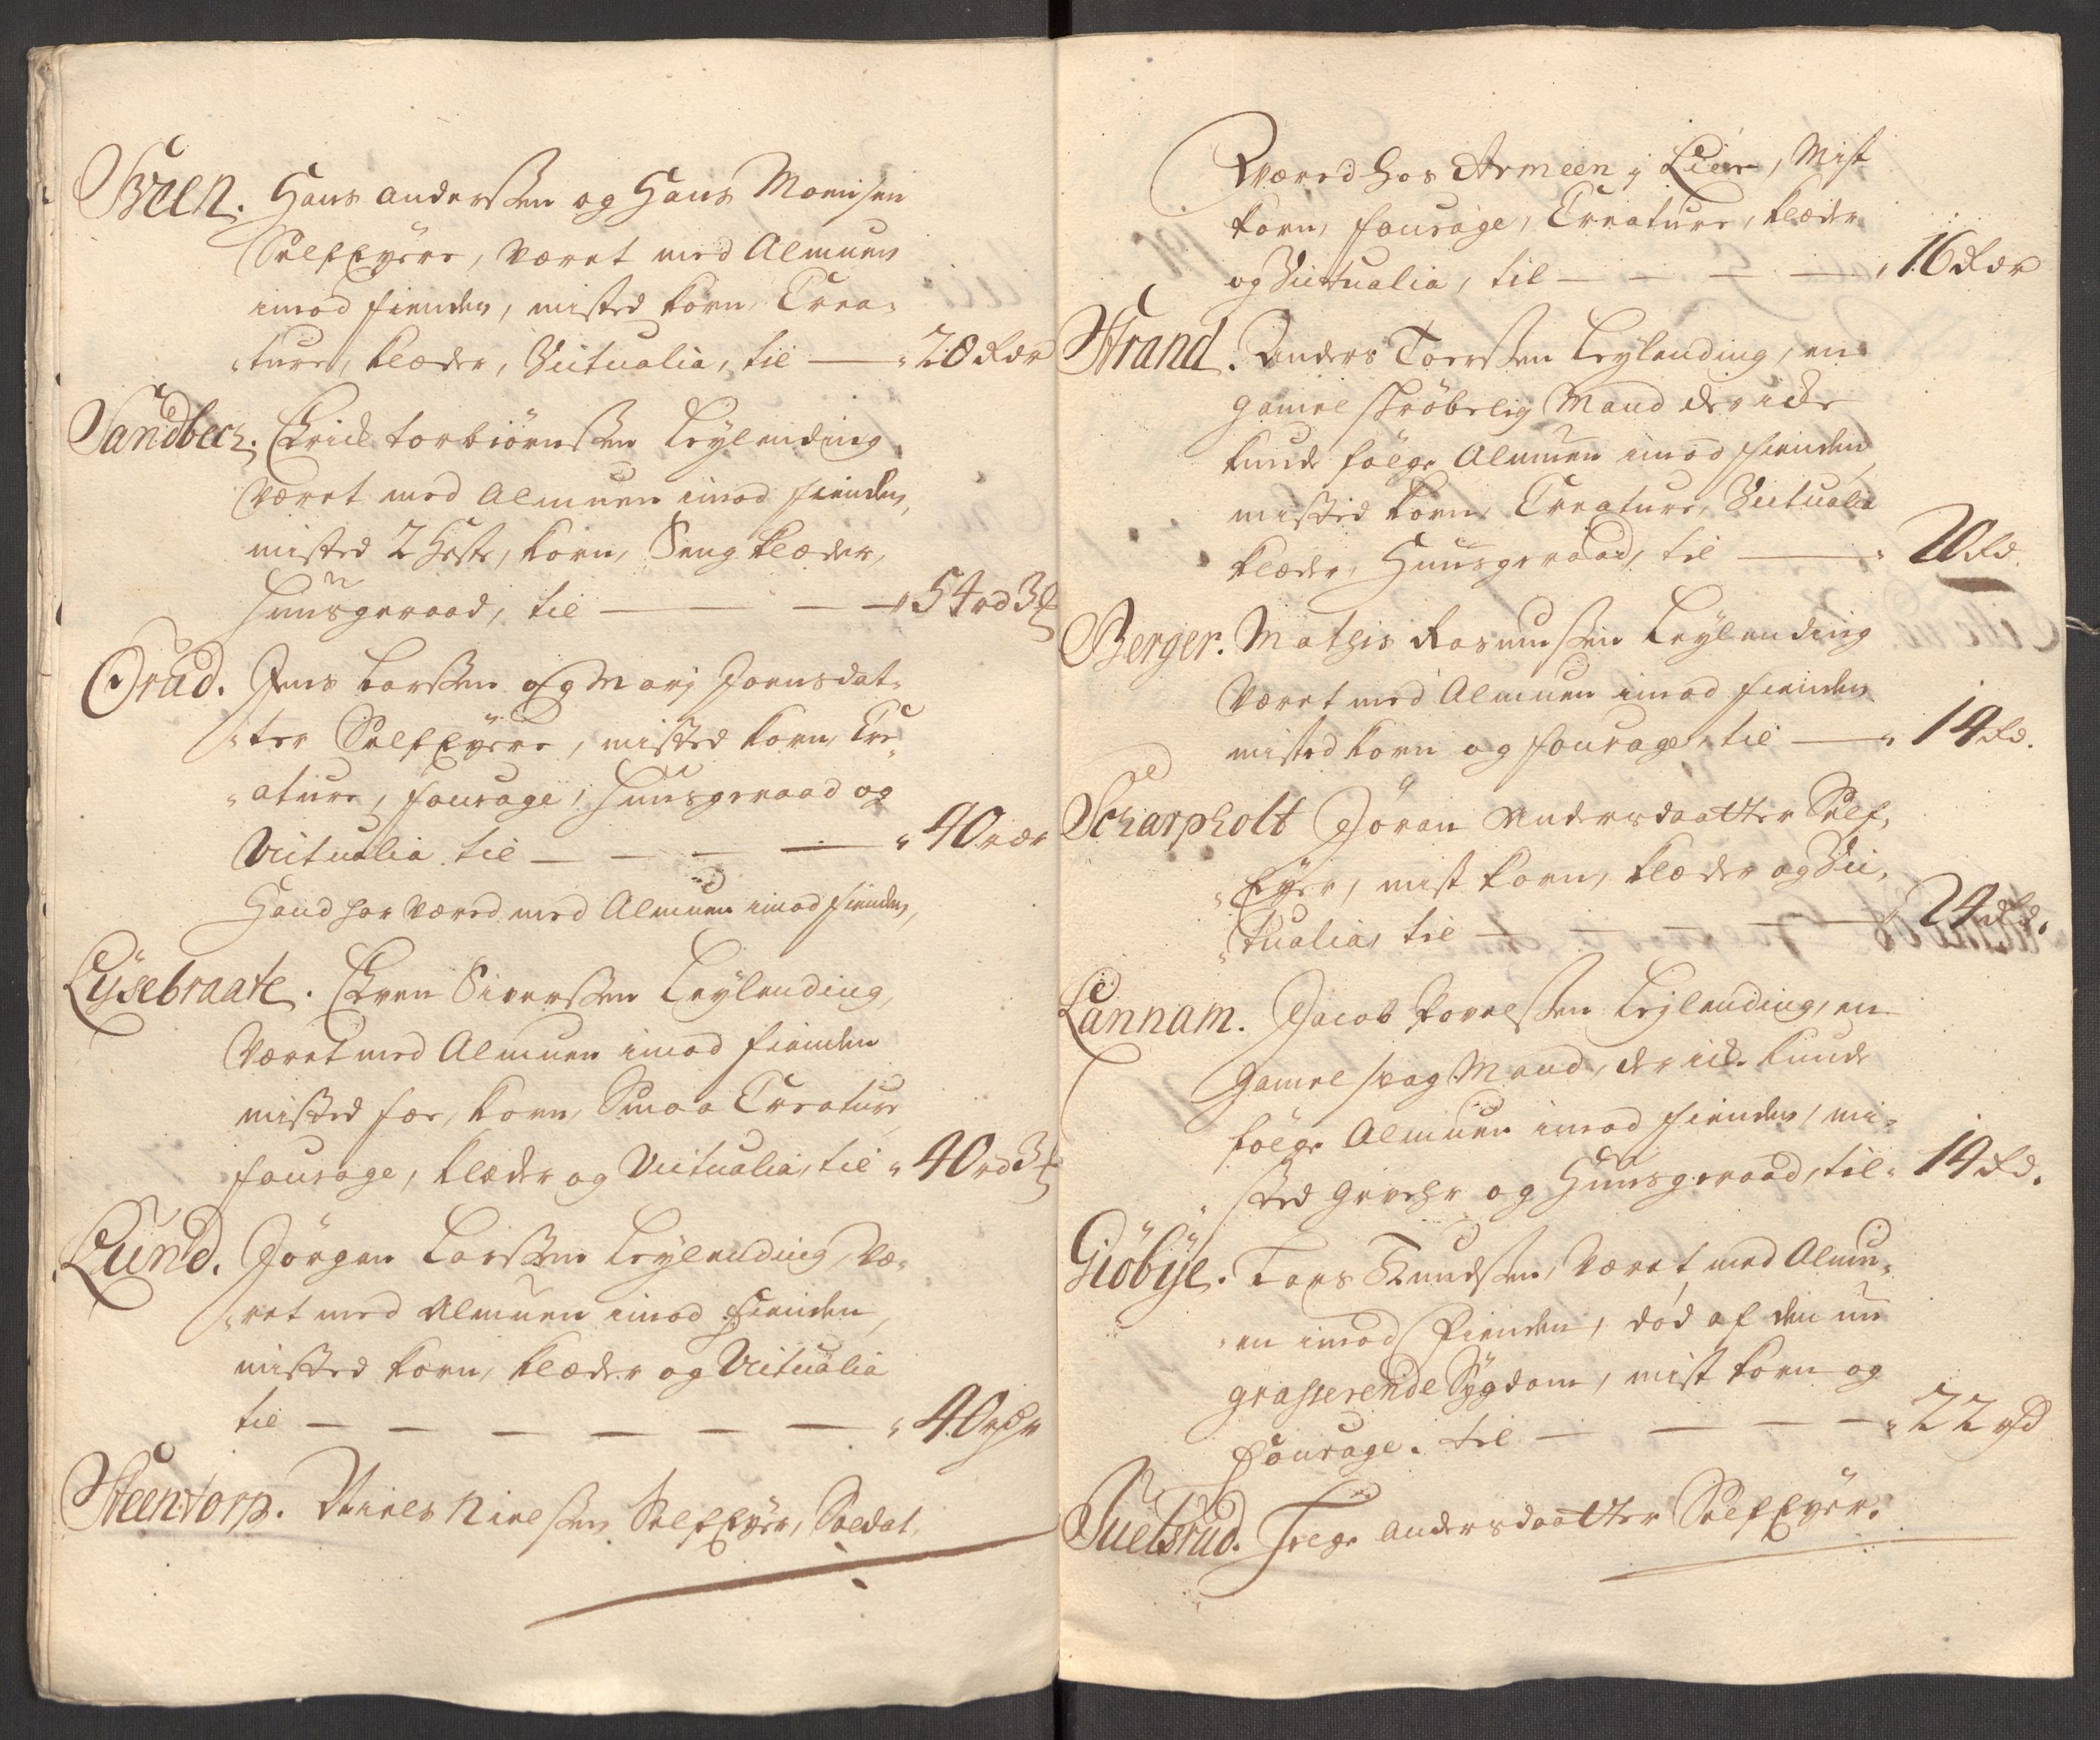 Breen. Hans anderssen og Hans Monsen
Selfeÿere, været med Almuen
imod fienden, misted korn, Crea-
ture, klæder, Victualia, til — 28 Rdr
Sandbech. Erich torbiörnssen leÿlending
været med Almuen imod fienden,
misted 2 Heste, korn, Sengklæder,
huusgeraad, til — 54 rd 3 ℔
Örud. Jens larssen og Marj Joensdat-
ter Selfeÿere, misted korn, Cre-
ature, fourage, huusgeraad og
Victualia til — 40 rdr
Hand har været med Almuen imod fienden,
Lÿsebraate. Even Siverssen leÿlending,
været med Almuen imod fienden
misted foer, korn, Smaa Creature
fourage, klæder og Victualia, til 40 rd 3 ℔
Lund. Jörgen larssen leÿlending, væ-
ret med Almuen imod fienden,
misted korn, klæder og Victualia
til — 40 rdr
Steentorp. Niels Nielssen Selfeÿer, Soldat,
været hos Armeen i Leiren, Mist
korn, fourage, Creature, klæder
og Victualia, til — 16 Rdr
Strand. Anders Toerssen leÿlending, en
gamel skröbelig Mand der icke
kunde fölge Almuen imod fienden
misted korn, Creature, Victualia
klæder, Huusgeraad, til — 20 Rd.
Berger. Mathis Rasmussen leÿlending
været med Almuen imod fienden
misted korn og fourage, til — 14 Rd.
Scharpholt Jöran Andersdaatter Self-
eÿer, mist korn, klæder og Vic-
tualia, til — 24 Rd.
Lannam. Jacob Povelssen leÿlending, en
gamel svag Mand, der icke kunde
fölge Almuen imod fienden, mi-
sted gevehr og Huusgeraad, til 14 Rd.
Giöbÿe. Lars Knudssen, været med Almu-
en imod fienden, död af den nu
grasserende Sÿgdom, mist korn og
fourage. til — 22 rd
Tuetsrud. Helge andersdaatter Selfeÿer.